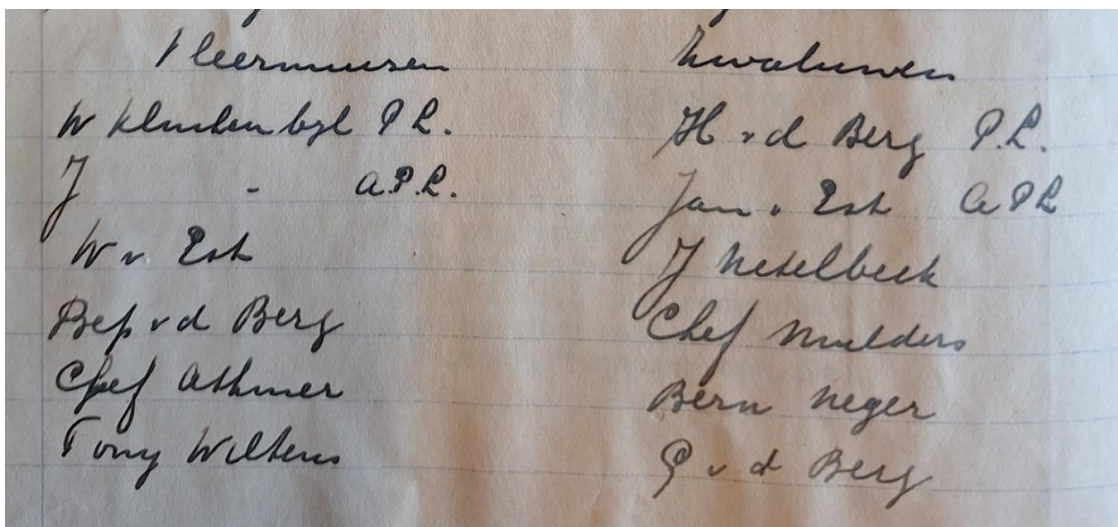 Vleermuisen
W P.L.
J - A.P.L.
W v. Esh
Bep v d Berg
Chef Athmer
Tony Wiltens
Zwaluwen
H v d Berg P.L.
Jan v. Esh A P L
J
Chef Mulders
Bern Neger
G v d Berg